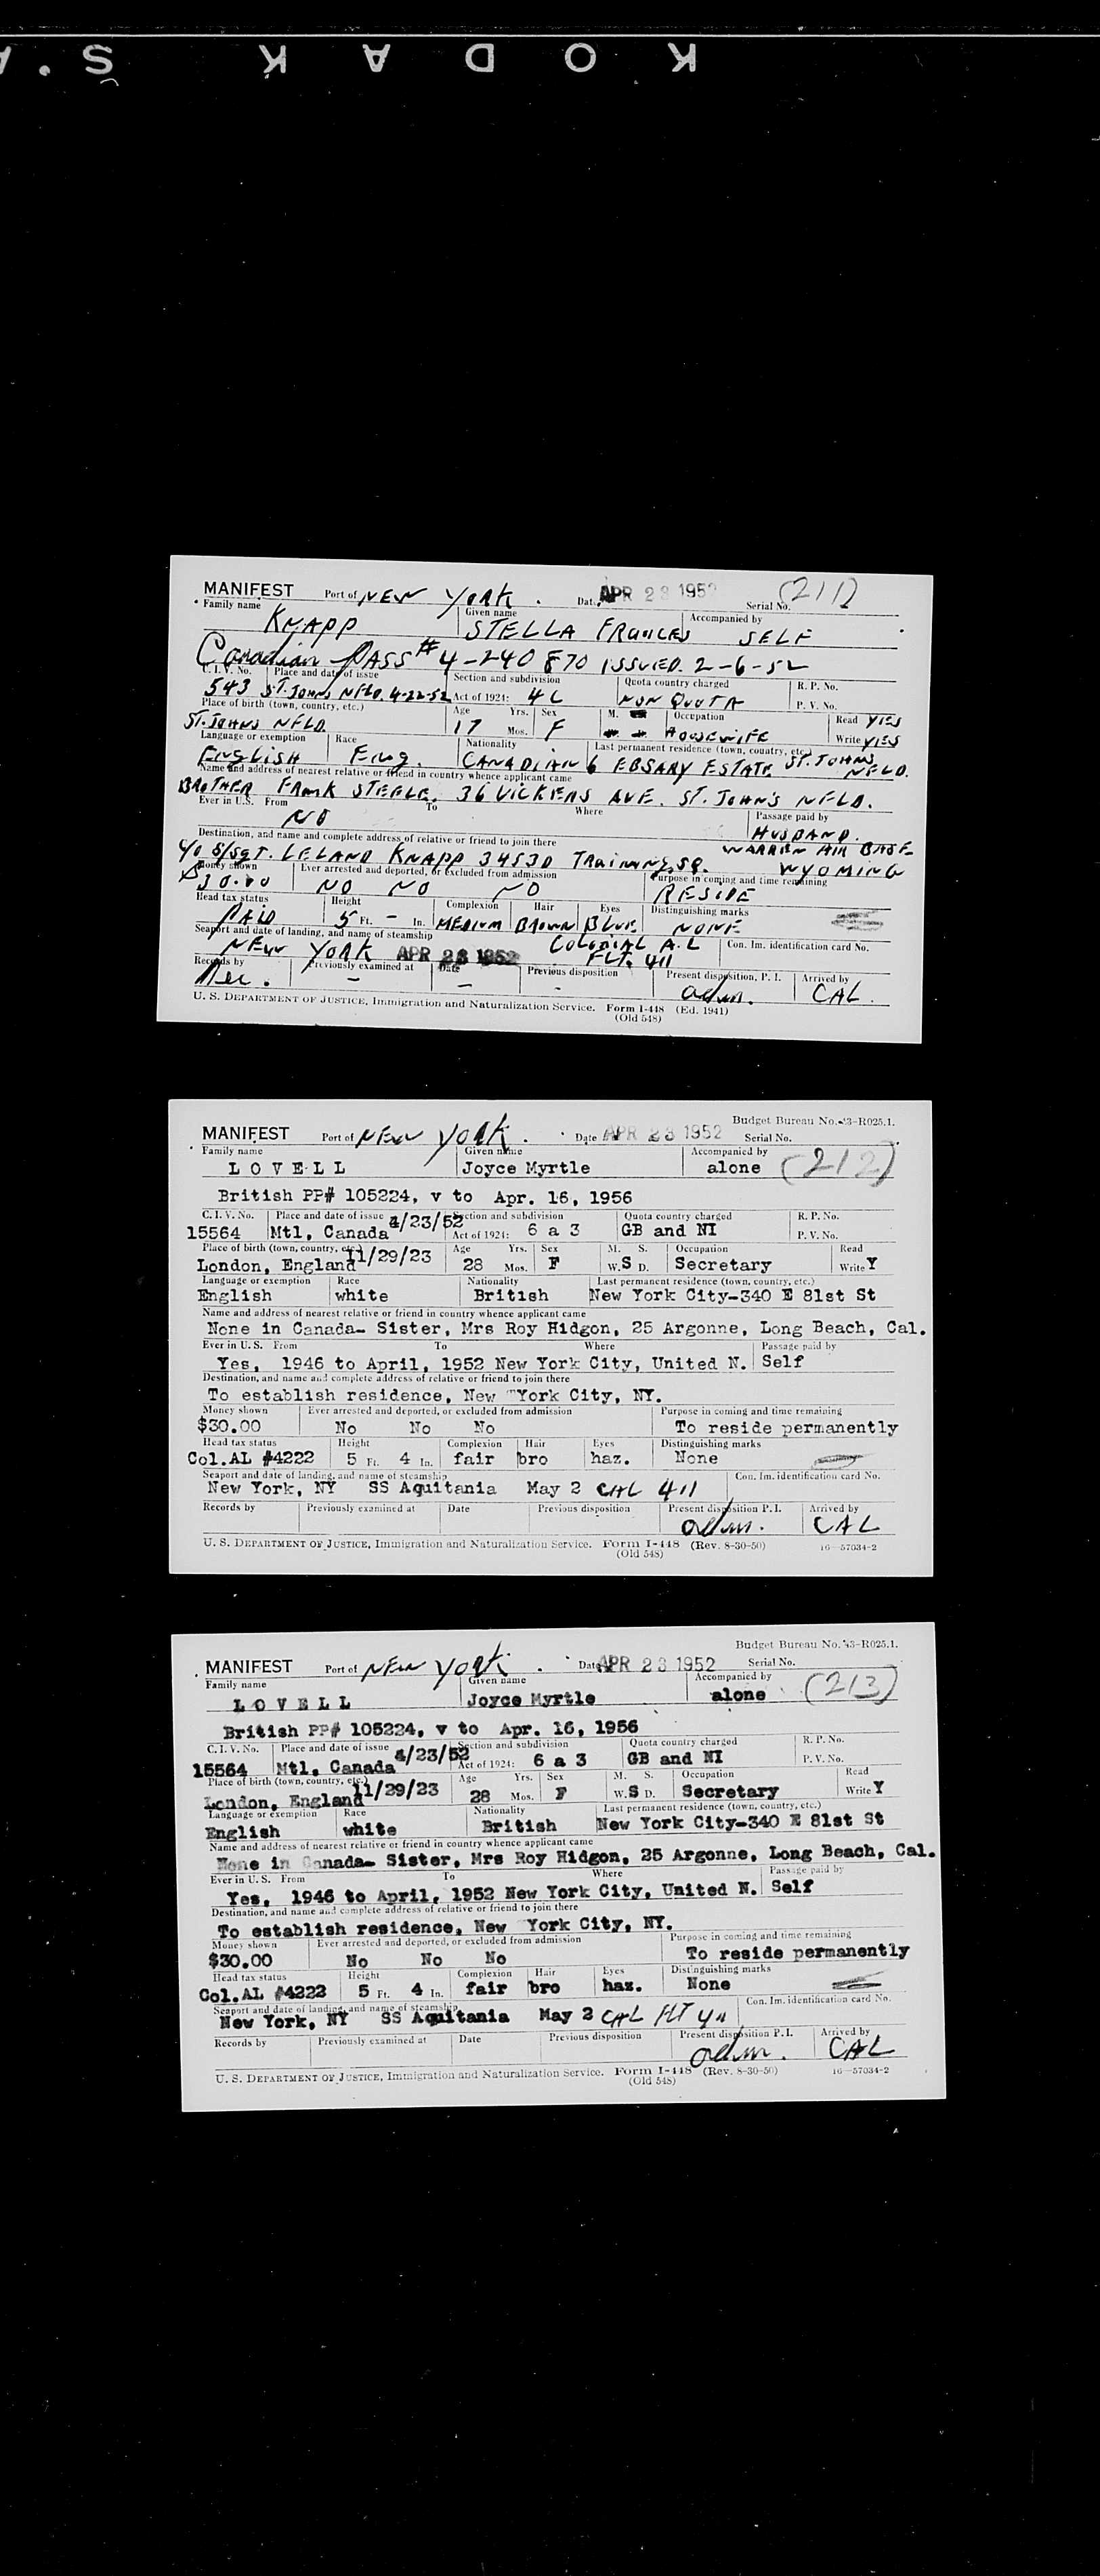 KODAK S.A
MANIFEST Port of NEW YORK. Date APR 23 1952 Serial No. (211)
Family name Given name Accompanied by
KNAPP STELLA FRANCES SELF
Canadian PASS # 4-240 870 ISSUED 2-6-52
C. I. V. No. Place and date of issue Section and subdivision Quota country charged R. P. No.
543 ST. JOHNS NFLD. 4-22-52 Act of 1924: 4 C NON QUOTA P. V. No.
Place of birth (town, country, etc.) Age Yrs. Sex M. Occupation Read YES
ST. JOHNS NFLD. 17 Mos. F HOUSEWIFE Write YES
Language or exemption Race Nationality Last permanent residence (town, country, etc.)
ENGLISH Eng. CANADIAN 6 EBSARY ESTATE ST. JOHNS NFLD.
Name and address of nearest relative or friend in country whence applicant came
BROTHER FRANK STEELE. 36 VICKERS AVE. ST. JOHN'S NFLD.
Ever in U.S. From To Where Passage paid by
NO HUSBAND.
Destination, and name and complete address of relative or friend to join there WARREN AIR BASE
c/o S/SGT. LELAND KNAPP 3453D TRAINING SQ. WYOMING
Money shown Ever arrested and deported, or excluded from admission Purpose in coming and time remaining
$30.00 NO NO NO RESIDE
Head tax status Height Complexion Hair Eyes Distinguishing marks
PAID 5 Ft. - In. MEDIUM BROWN BLUE NONE
Seaport and date of landing, and name of steamship COLONIAL A.L Con. Im. identification card No.
NEW YORK APR 23 1952 FLT. 411
Records by Previously examined at Date Previous disposition Present disposition, P. I. Arrived by
- - - adm. CAL.
U. S. DEPARTMENT OF JUSTICE, Immigration and Naturalization Service. Form I-448 (Ed. 1941)
(Old 548)
Budget Bureau No. 43-R025.1.
MANIFEST Port of NEW YORK. Date APR 23 1952 Serial No.
Family name Given name Accompanied by
LOVELL Joyce Myrtle alone (212)
British PP# 105224, v to Apr. 16, 1956
C. I. V. No. Place and date of issue 4/23/52 Section and subdivision Quota country charged R. P. No.
15564 Mtl, Canada Act of 1924: 6 a 3 GB and NI P. V. No.
Place of birth (town, country, etc.) 11/29/23 Age Yrs. Sex M. S. Occupation Read
London, England 28 Mos. F W. S D. Secretary Write Y
Language or exemption Race Nationality Last permanent residence (town, country, etc.)
English white British New York City-340 E 81st St
Name and address of nearest relative or friend in country whence applicant came
None in Canada- Sister, Mrs Roy Hidgon, 25 Argonne, Long Beach, Cal.
Ever in U. S. From To Where Passage paid by
Yes, 1946 to April, 1952 New York City, United N. Self
Destination, and name and complete address of relative or friend to join there
To establish residence, New York City, NY.
Money shown Ever arrested and deported, or excluded from admission Purpose in coming and time remaining
$30.00 No No No To reside permanently
Head tax status Height Complexion Hair Eyes Distinguishing marks
Col.AL #4222 5 Ft. 4 In. fair bro haz. None
Seaport and date of landing, and name of steamship Con. Im. identification card No.
New York, NY SS Aquitania May 2 CAL 411
Records by Previously examined at Date Previous disposition Present disposition P. I. Arrived by
adm. CAL
U. S. DEPARTMENT OF JUSTICE, Immigration and Naturalization Service. Form I-448 (Rev. 8-30-50) 16-57034-2
(Old 548)
Budget Bureau No. 43-R025.1.
MANIFEST Port of NEW YORK. Date APR 23 1952 Serial No.
Family name Given name Accompanied by
LOVELL Joyce Myrtle alone (213)
British PP# 105224, v to Apr. 16, 1956
C. I. V. No. Place and date of issue 4/23/52 Section and subdivision Quota country charged R. P. No.
15564 Mtl, Canada Act of 1924: 6 a 3 GB and NI P. V. No.
Place of birth (town, country, etc.) 11/29/23 Age Yrs. Sex M. S. Occupation Read
London, England 28 Mos. F W. S D. Secretary Write Y
Language or exemption Race Nationality Last permanent residence (town, country, etc.)
English white British New York City-340 E 81st St
Name and address of nearest relative or friend in country whence applicant came
None in Canada- Sister, Mrs Roy Hidgon, 25 Argonne, Long Beach, Cal.
Ever in U. S. From To Where Passage paid by
Yes, 1946 to April, 1952 New York City, United N. Self
Destination, and name and complete address of relative or friend to join there
To establish residence, New York City, NY.
Money shown Ever arrested and deported, or excluded from admission Purpose in coming and time remaining
$30.00 No No No To reside permanently
Head tax status Height Complexion Hair Eyes Distinguishing marks
Col.AL #4222 5 Ft. 4 In. fair bro haz. None
Seaport and date of landing, and name of steamship Con. Im. identification card No.
New York, NY SS Aquitania May 2 CAL FLT 411
Records by Previously examined at Date Previous disposition Present disposition P. I. Arrived by
adm. CAL
U. S. DEPARTMENT OF JUSTICE, Immigration and Naturalization Service. Form I-448 (Rev. 8-30-50) 16-57034-2
(Old 548)